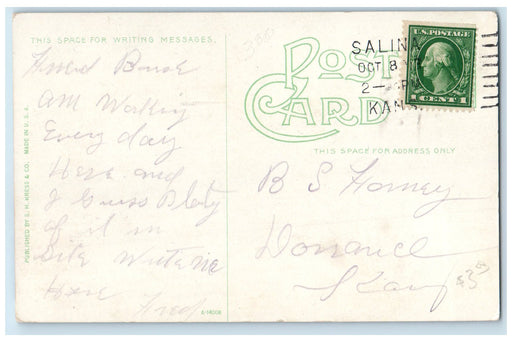 THIS SPACE FOR WRITING MESSAGES.
Friend
am Working
Every day
Here and
I Guess Plenty
of it in
Site Write Me
Here
Fred
PUBLISHED BY S. H. KRESS & CO. MADE IN U.S.A.
POST CARD
SALINA
OCT 8
2 - PM
KANS.
U.S. POSTAGE
1 CENT 1
THIS SPACE FOR ADDRESS ONLY
B S Forney
Dorrance
Kans